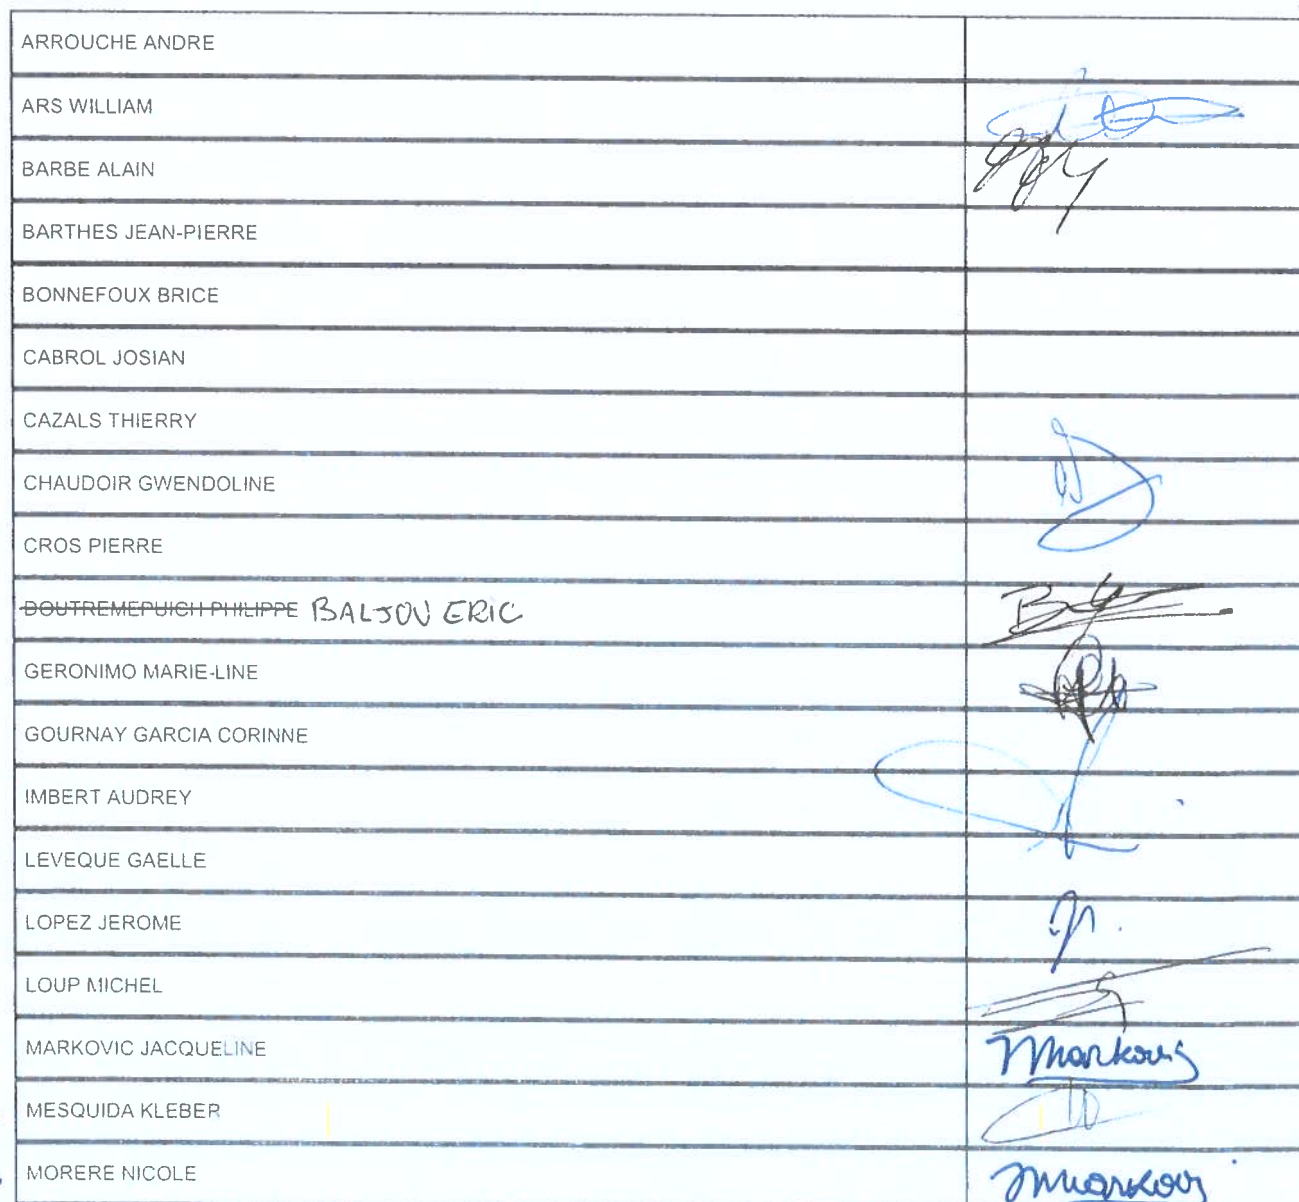 ARROUCHE ANDRE
ARS WILLIAM
BARBE ALAIN
BARTHES JEAN-PIERRE
BONNEFOUX BRICE
CABROL JOSIAN
CAZALS THIERRY
CHAUDOIR GWENDOLINE
CROS PIERRE
DOUTREMEPUICH PHILIPPE BALJOU ERIC
GERONIMO MARIE-LINE
GOURNAY GARCIA CORINNE
IMBERT AUDREY
LEVEQUE GAELLE
LOPEZ JEROME
LOUP MICHEL
MARKOVIC JACQUELINE
MESQUIDA KLEBER
MORERE NICOLE